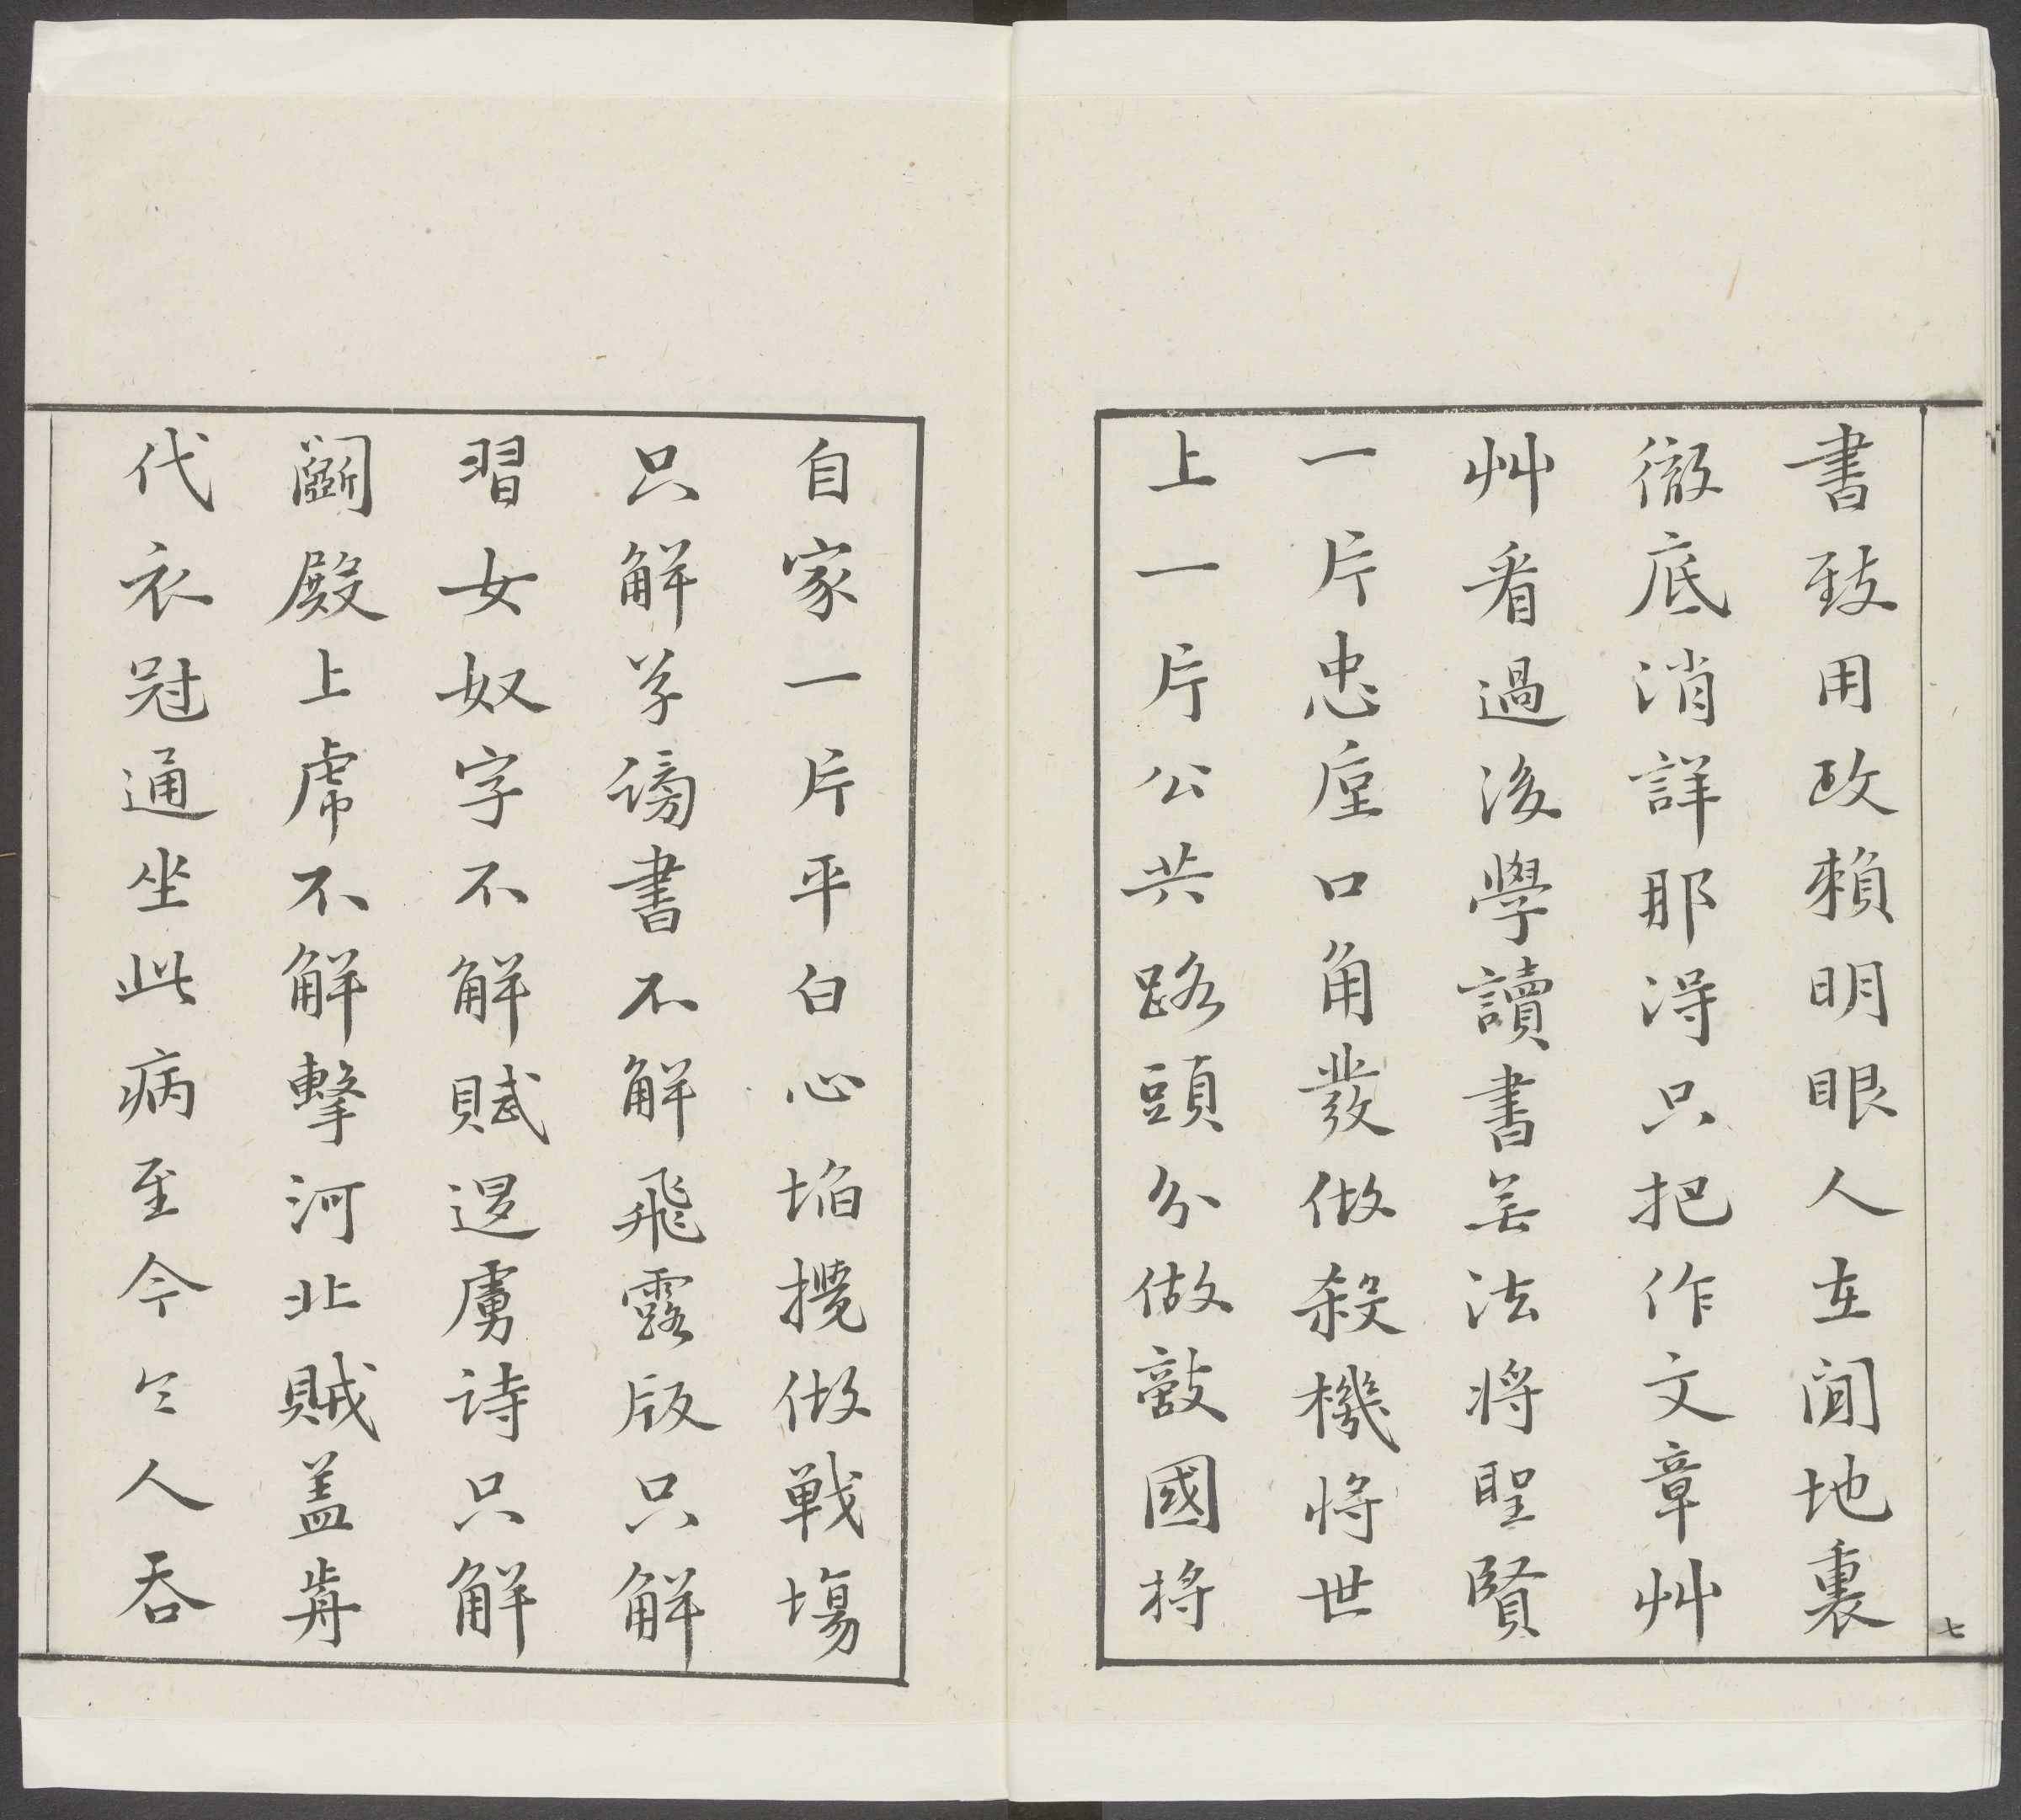 書致用政賴明眼人在閒地裏
徹底消詳那得只把作文章艸
艸看過後學讀書無法將聖賢
一片忠厚口角發做殺機將世
上一片公共路頭分做敵國將
自家一片平白心地攪做戰場
只解草謗書不解飛露版只解
習女奴字不解賦退虜詩只解
鬭殿上虎不解擊河北賊蓋前
代衣冠通坐此病至今令人吞
七